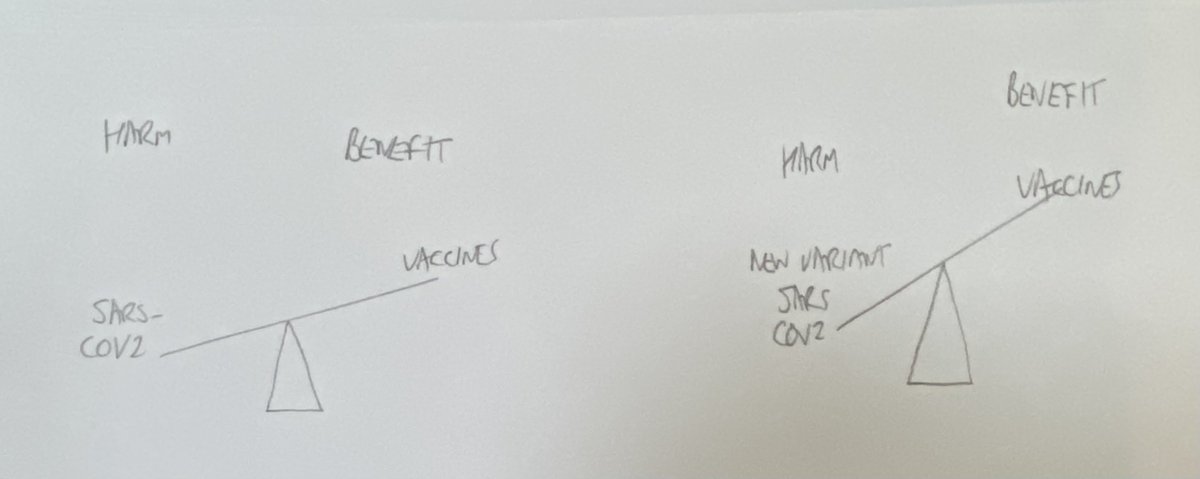 HARM
BENEFIT
VACCINES
SARS-
COV2
BENEFIT
HARM
VACCINES
NEW VARIANT
SARS
COV2